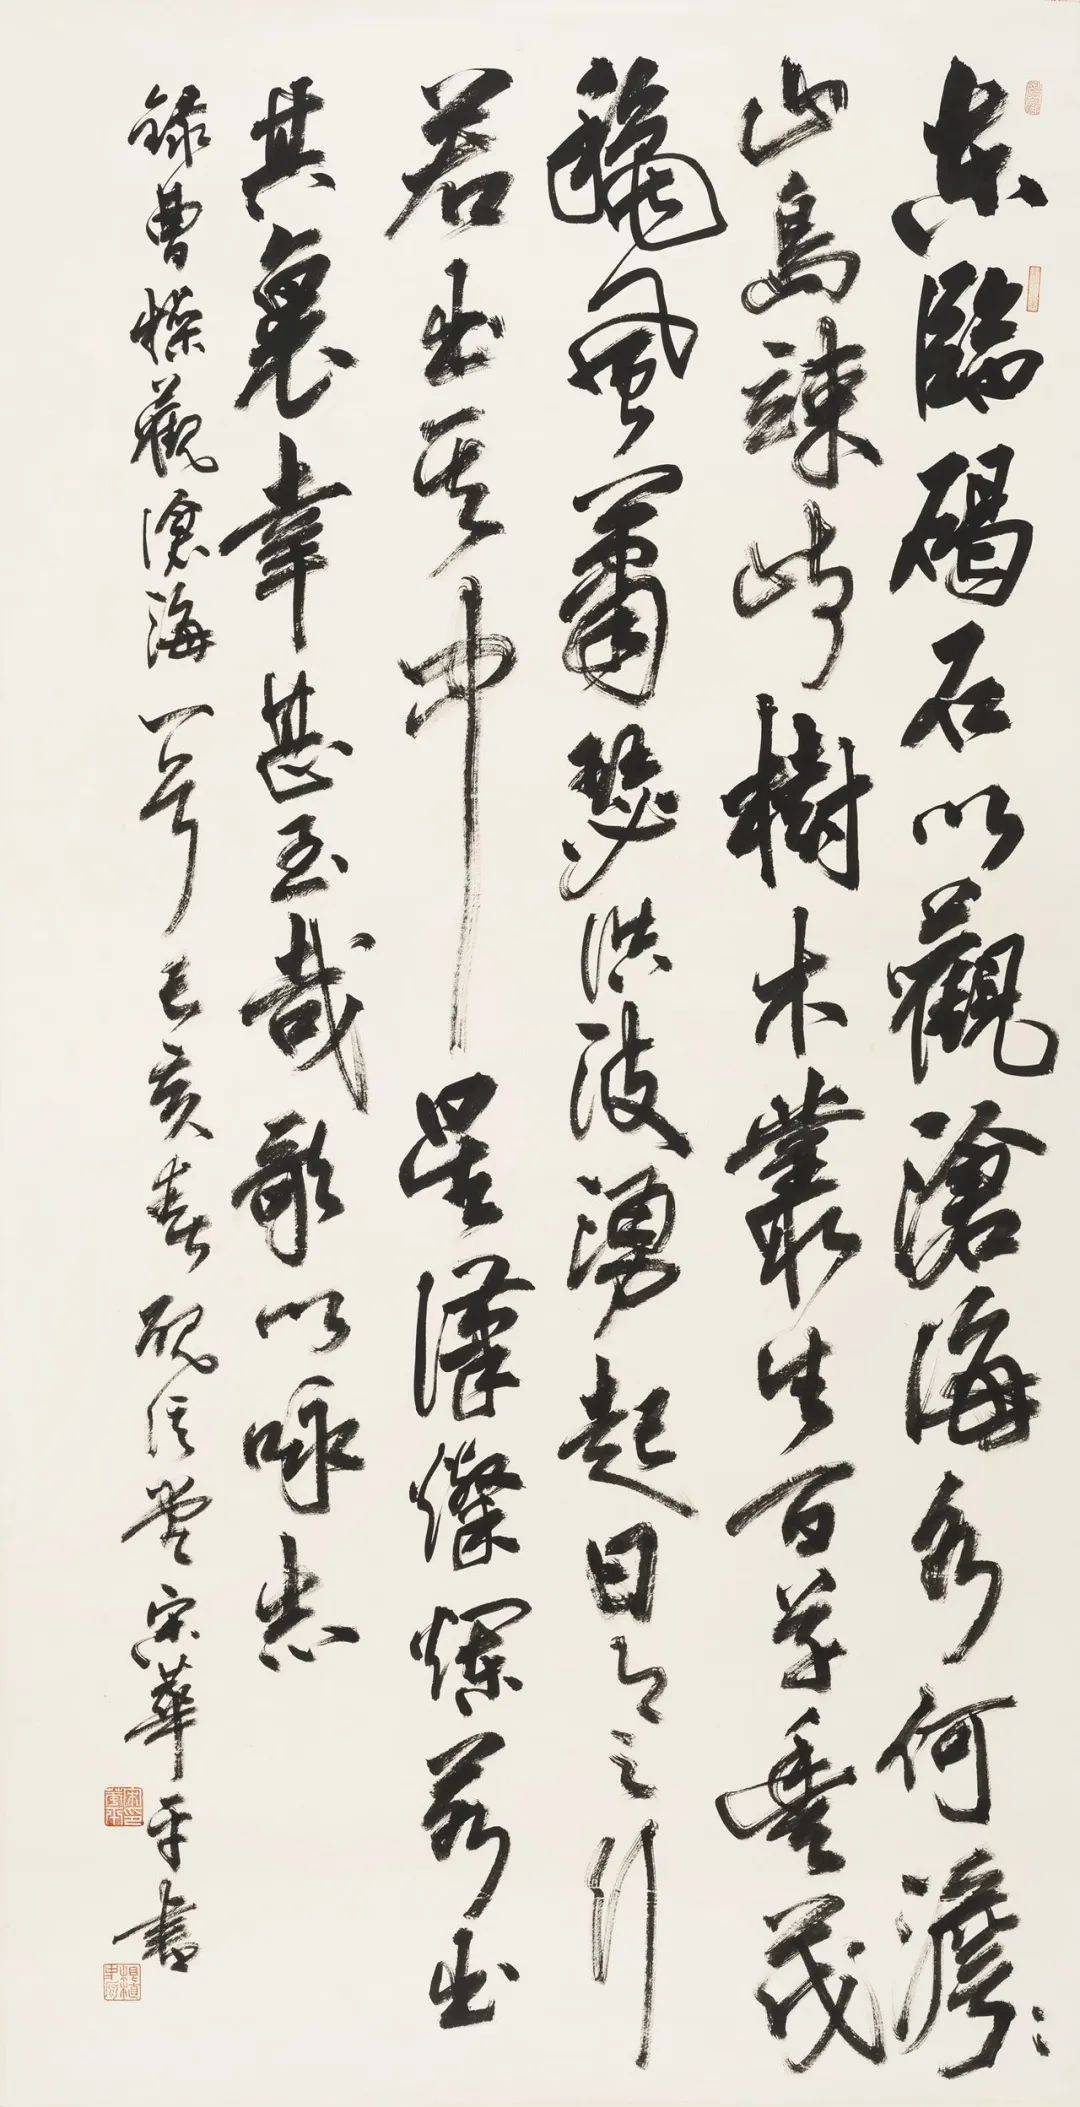 東臨碣石以觀滄海水何澹〻
山島竦峙樹木叢生百草豐茂
龝風蕭瑟洪波湧起日月之行
若出其中星漢燦爛若出
其裏幸甚至哉歌以咏志
錄曹操觀滄海一首己亥春宋華平書